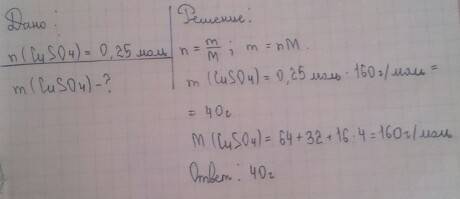 Дано:
n(CuSO4) = 0,25 моль
m(CuSO4) - ?
Решение:
n = m/M; m = nM.
m(CuSO4) = 0,25 моль · 160 г/моль =
= 40 г.
M(CuSO4) = 64 + 32 + 16 · 4 = 160 г/моль
Ответ: 40 г